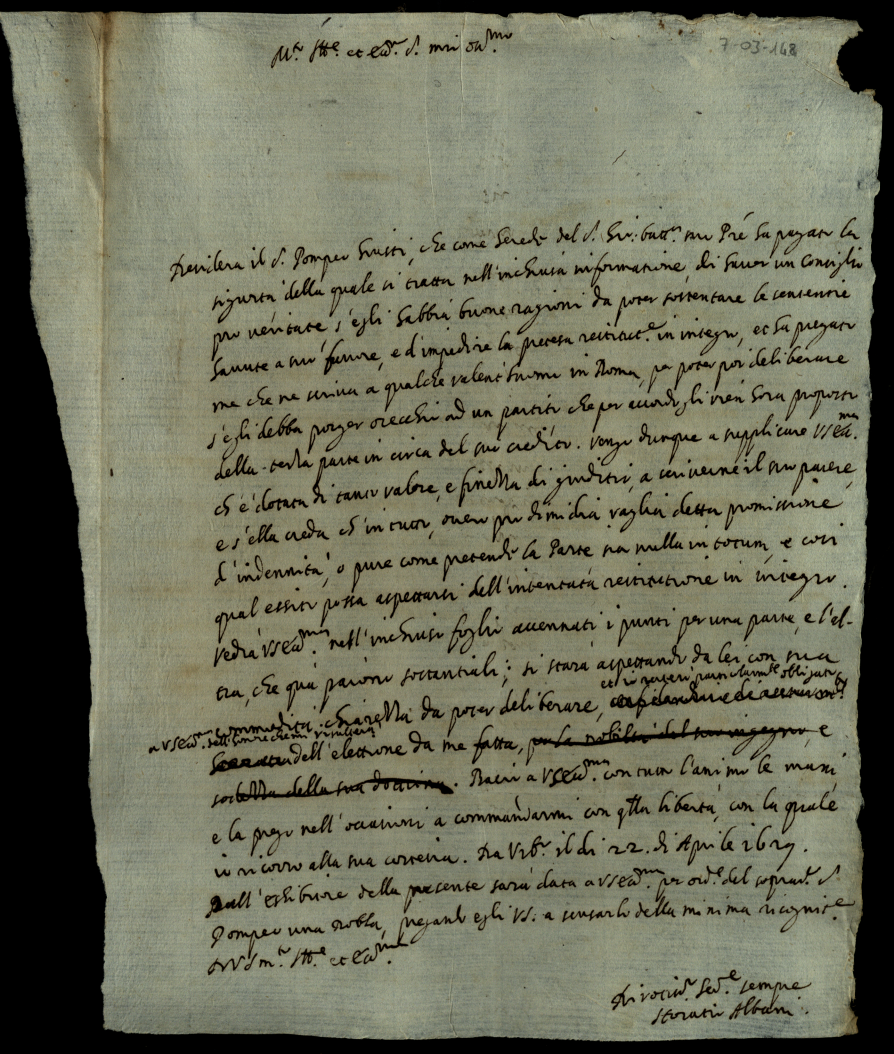 7-03-148
M.to Ill.re et Ecc.te S.r mio oss.mo
Desidera il S. Pompeo Giusti, che come herede del S. Gio: batt.a suo P're ha pagato la
sigurtà della quale si tratta nell'inchiusa informatione di haver un Consiglio
pro veritate s'egli habbia buone ragioni da poter sostentare le sentenze
havute a suo favore, e d'impedire la pretesa restitut.e in integro, et ha pregato
me che ne scriva a qualche valent'huomo in Roma, per poter poi deliberare
s'egli debba porger orecchio ad un partito che per accordo gli vien hora proposto
della terza parte in circa del suo credito. vengo dunque a supplicare VSEcc.ma
ch'è dotata di tanto valore, e finezza di giuditio, a scriverne il suo parere,
e s'ella creda ch'in tutto, overo pro dimidia vaglia detta promissione
d'indennità, o pure come pretende la Parte sia nulla in totum, e così
qual essito possa aspettarsi dell'intentata restitutione in integro.
vedrà VSEcc.ma nell'inchiuso foglio accennati i punti per una parte, e l'al-
tra, che quà paiono sostantiali; si starà aspettando da lei con sua
et io resterò particolarm.te obligato
commodità chiarezza da poter deliberare,
a VSEcc.ma dell'honore che mi
dell'elettione da me fatta, per la nobiltà del suo ingegno, e
sodezza della sua dottrina. Bacio a VSEcc.ma con tutto l'animo le mani
e la prego nell'occasioni a commandarmi con q'lla libertà, con la quale
io ricorro alla sua cortesia. Da Urb.o il dì 22. di Aprile 1627.
Dall'eshibitore della presente sarà data a VSEcc.ma per ord.e del soprad.o S.
Pompeo una dobla, pregando egli VS. a scusarlo della minima ricognit.e
Di VS m.to Ill.re et Ecc.ma
Devotiss.o Ser.re sempre
Horatio Albani.